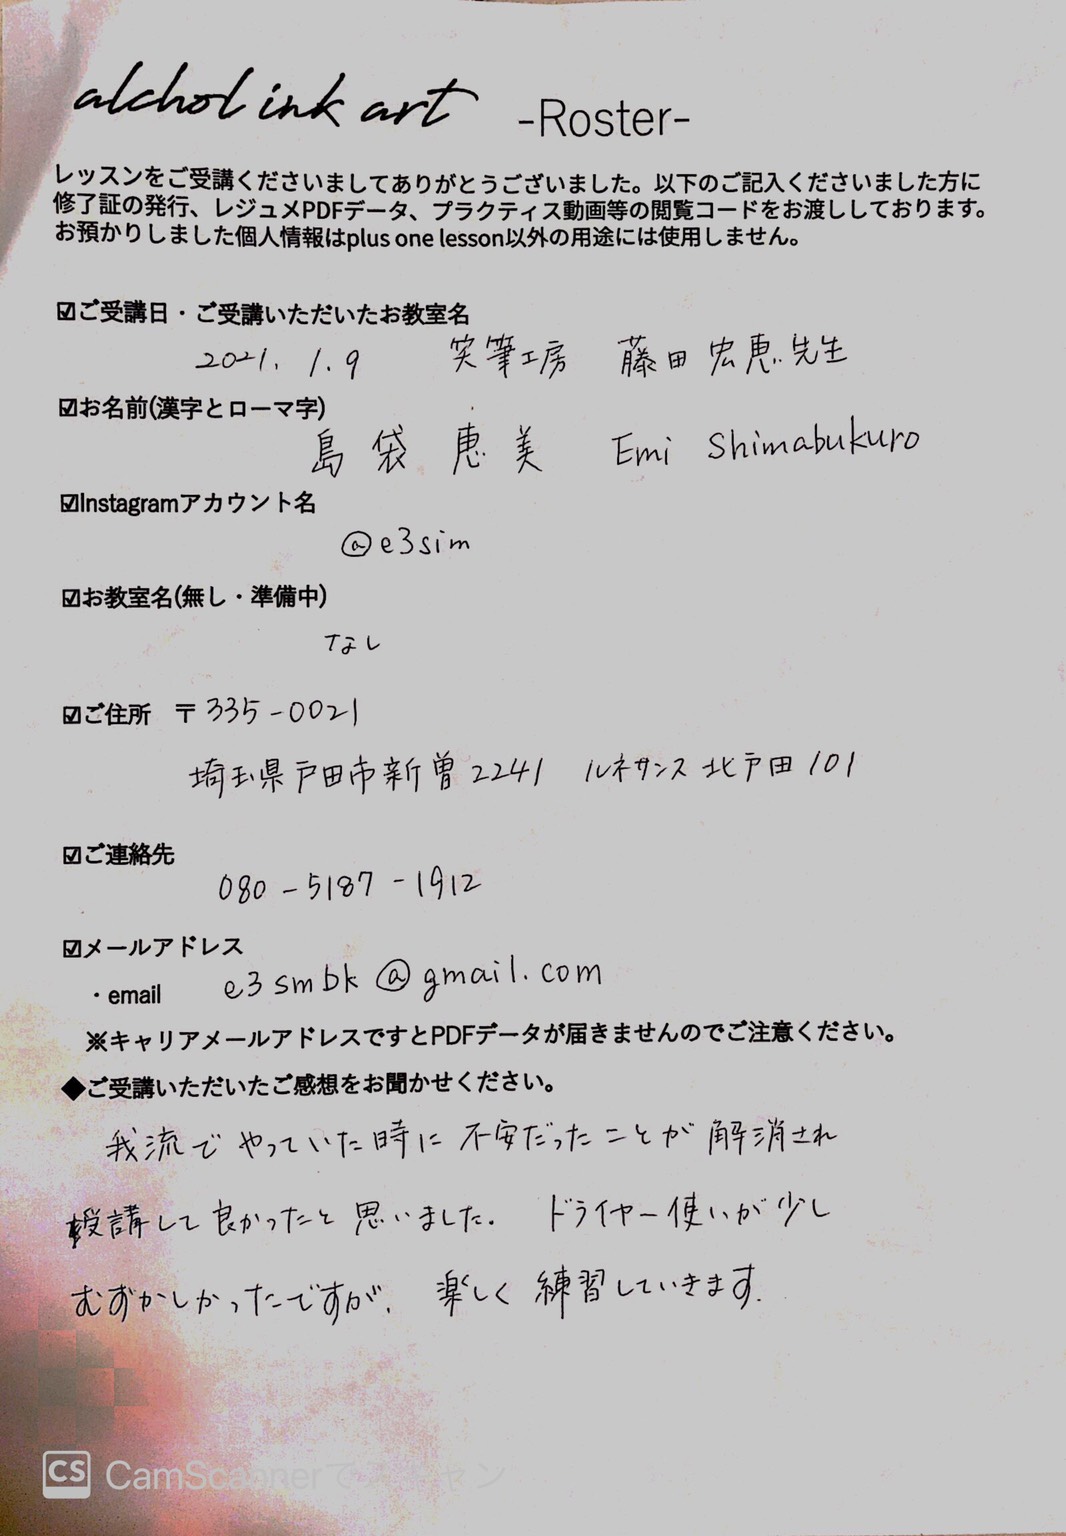 alchol ink art -Roster-
レッスンをご受講くださいましてありがとうございました。以下のご記入くださいました方に
修了証の発行、レジュメPDFデータ、プラクティス動画等の閲覧コードをお渡ししております。
お預かりしました個人情報はplus one lesson以外の用途には使用しません。
☑ご受講日・ご受講いただいたお教室名
2021. 1. 9 笑筆工房 藤田 宏恵先生
☑お名前(漢字とローマ字)
島袋 恵美 Emi Shimabukuro
☑Instagramアカウント名
@e3sim
☑お教室名(無し・準備中)
なし
☑ご住所 〒335-0021
埼玉県戸田市新曽2241 ルネサンス北戸田101
☑ご連絡先
080-5187-1912
☑メールアドレス
・email e3smbk@gmail.com
※キャリアメールアドレスですとPDFデータが届きませんのでご注意ください。
◆ご受講いただいたご感想をお聞かせください。
我流でやっていた時に不安だったことが解消され
受講して良かったと思いました。 ドライヤー使いが少し
むずかしかったですが、楽しく練習していきます.
CS CamScannerでスキャン